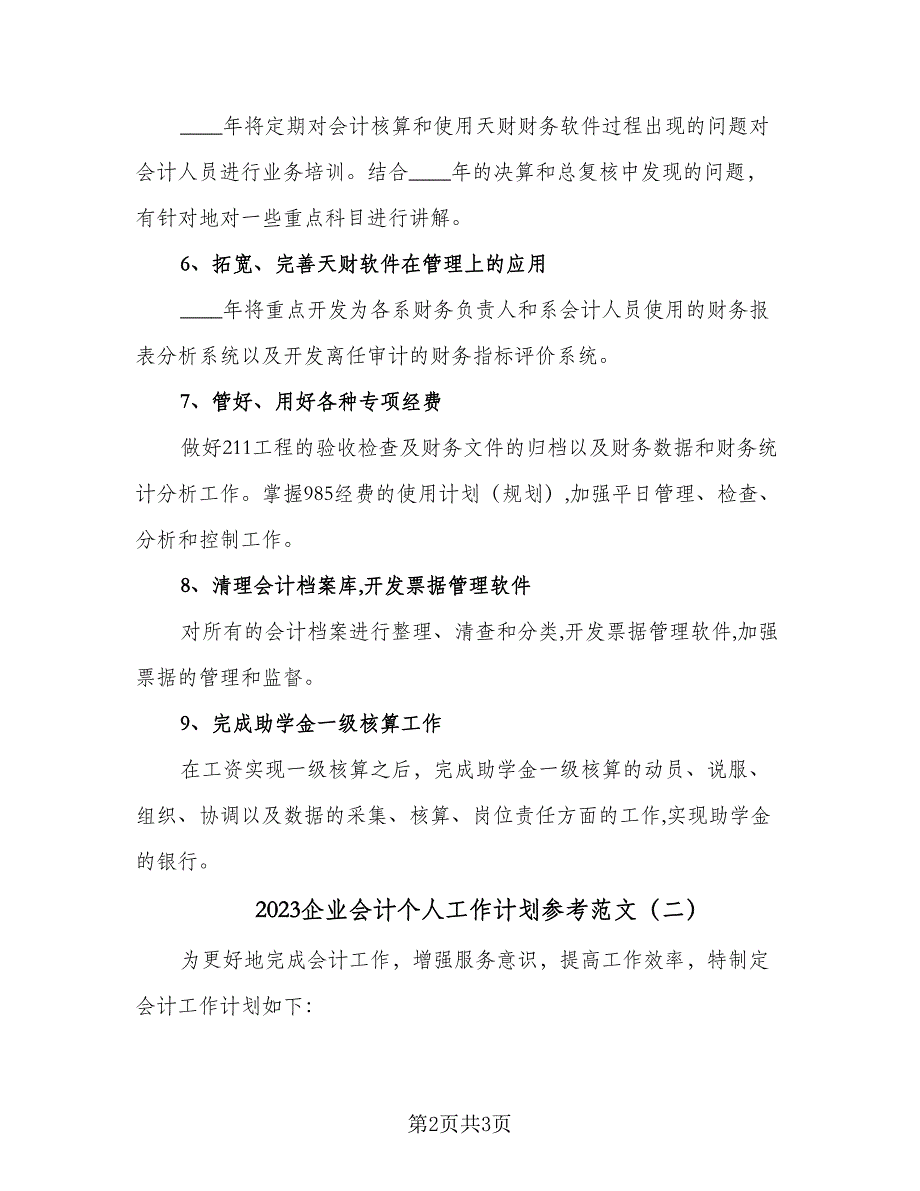 ____年将定期对会计核算和使用天财财务软件过程出现的问题对
会计人员进行业务培训。结合____年的决算和总复核中发现的问题，
有针对地对一些重点科目进行讲解。
6、拓宽、完善天财软件在管理上的应用
____年将重点开发为各系财务负责人和系会计人员使用的财务报
表分析系统以及开发离任审计的财务指标评价系统。
7、管好、用好各种专项经费
做好211工程的验收检查及财务文件的归档以及财务数据和财务统
计分析工作。掌握985经费的使用计划（规划）,加强平日管理、检查、
分析和控制工作。
8、清理会计档案库,开发票据管理软件
对所有的会计档案进行整理、清查和分类,开发票据管理软件,加强
票据的管理和监督。
9、完成助学金一级核算工作
在工资实现一级核算之后，完成助学金一级核算的动员、说服、
组织、协调以及数据的采集、核算、岗位责任方面的工作,实现助学金
的银行。
2023企业会计个人工作计划参考范文（二）
为更好地完成会计工作，增强服务意识，提高工作效率，特制定
会计工作计划如下：
第2页共3页